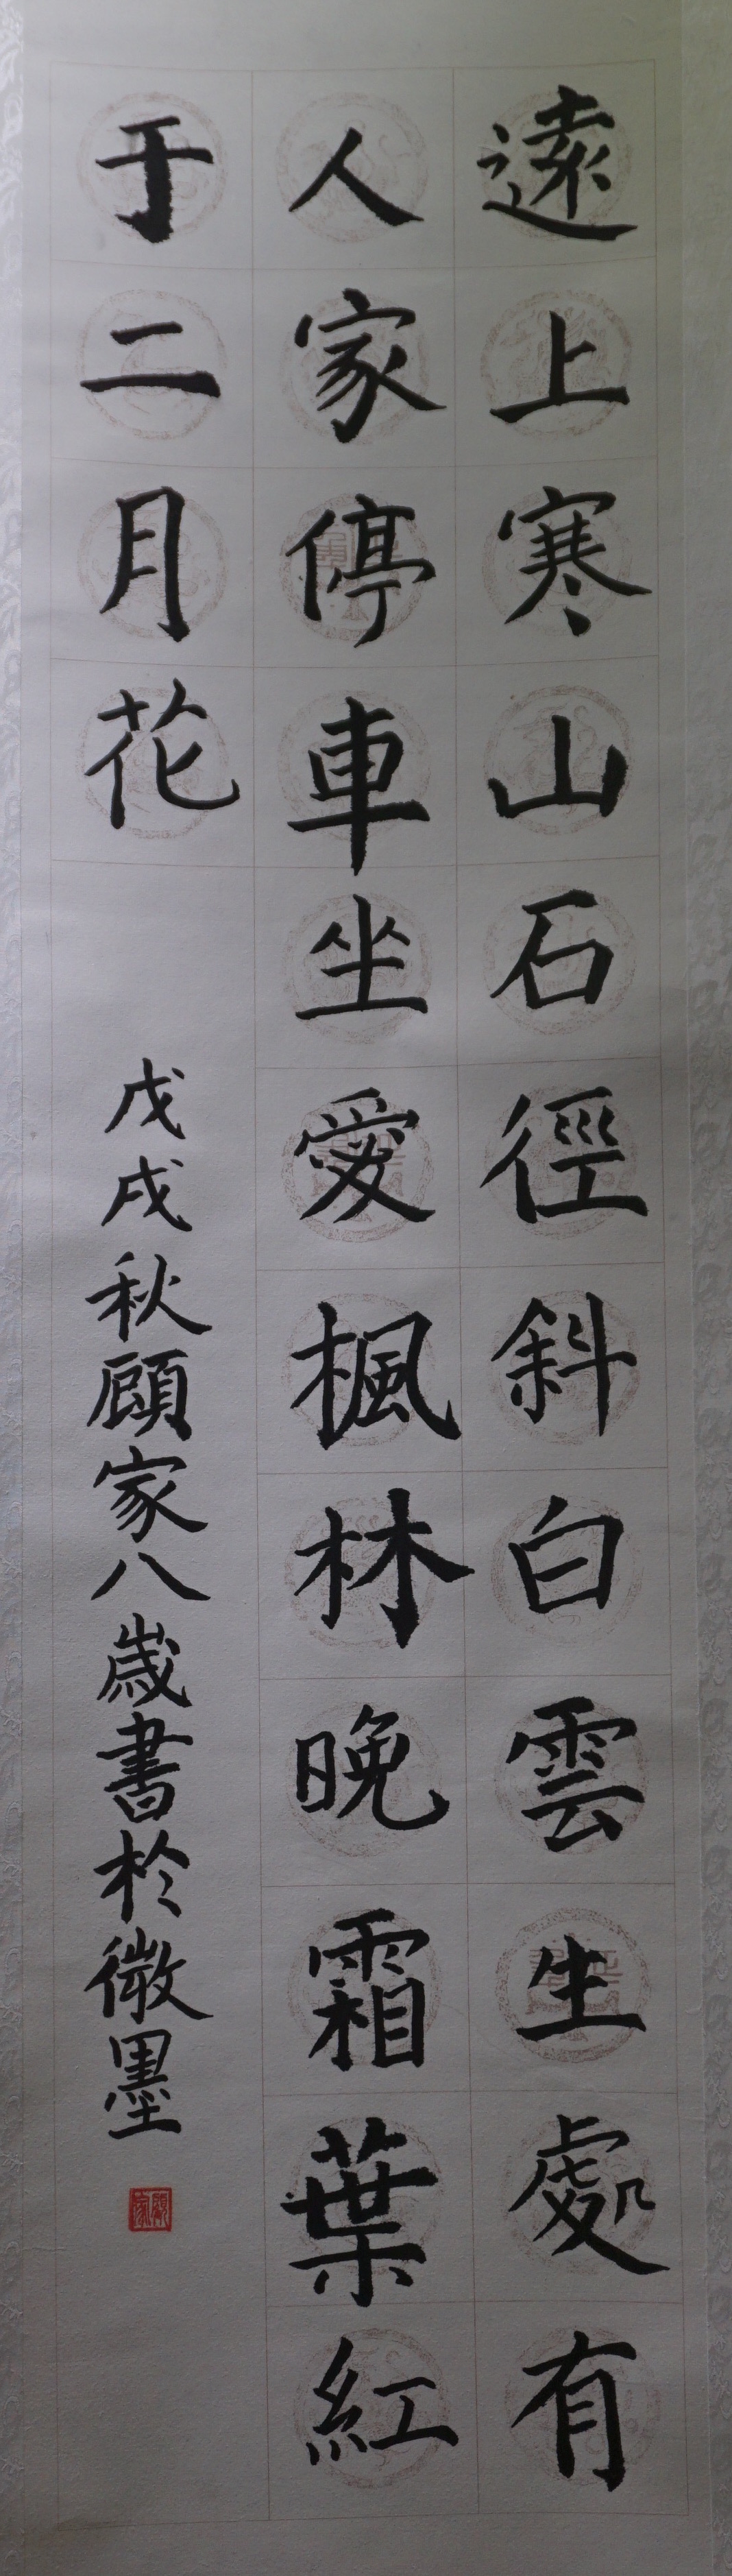 遠上寒山石徑斜白雲生處有
人家停車坐愛楓林晚霜葉紅
于二月花
戊戌秋顧家八歲書於徽墨
顧家